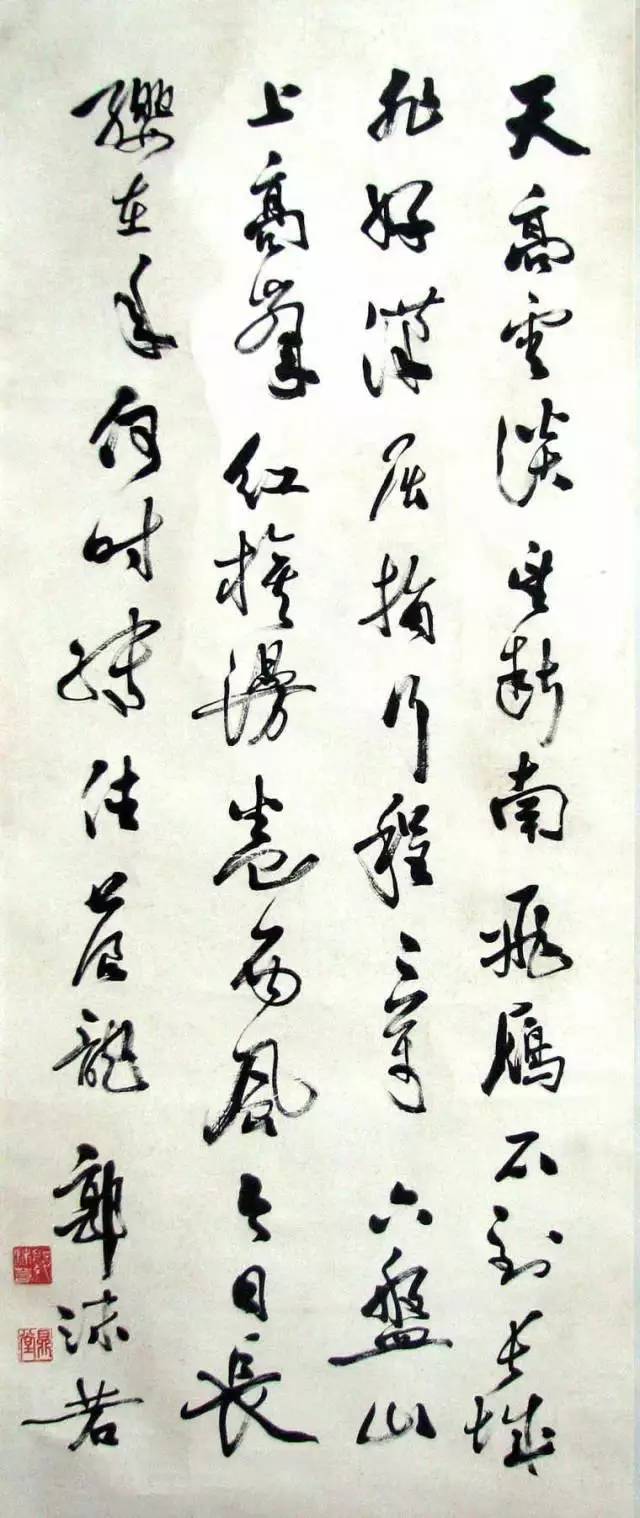 天高雲淡望斷南飛雁不到長城
非好漢屈指行程二萬六盤山
上高峯紅旗漫卷西風今日長
纓在手何时縛住蒼龍郭沫若
郭沫若
鼎堂